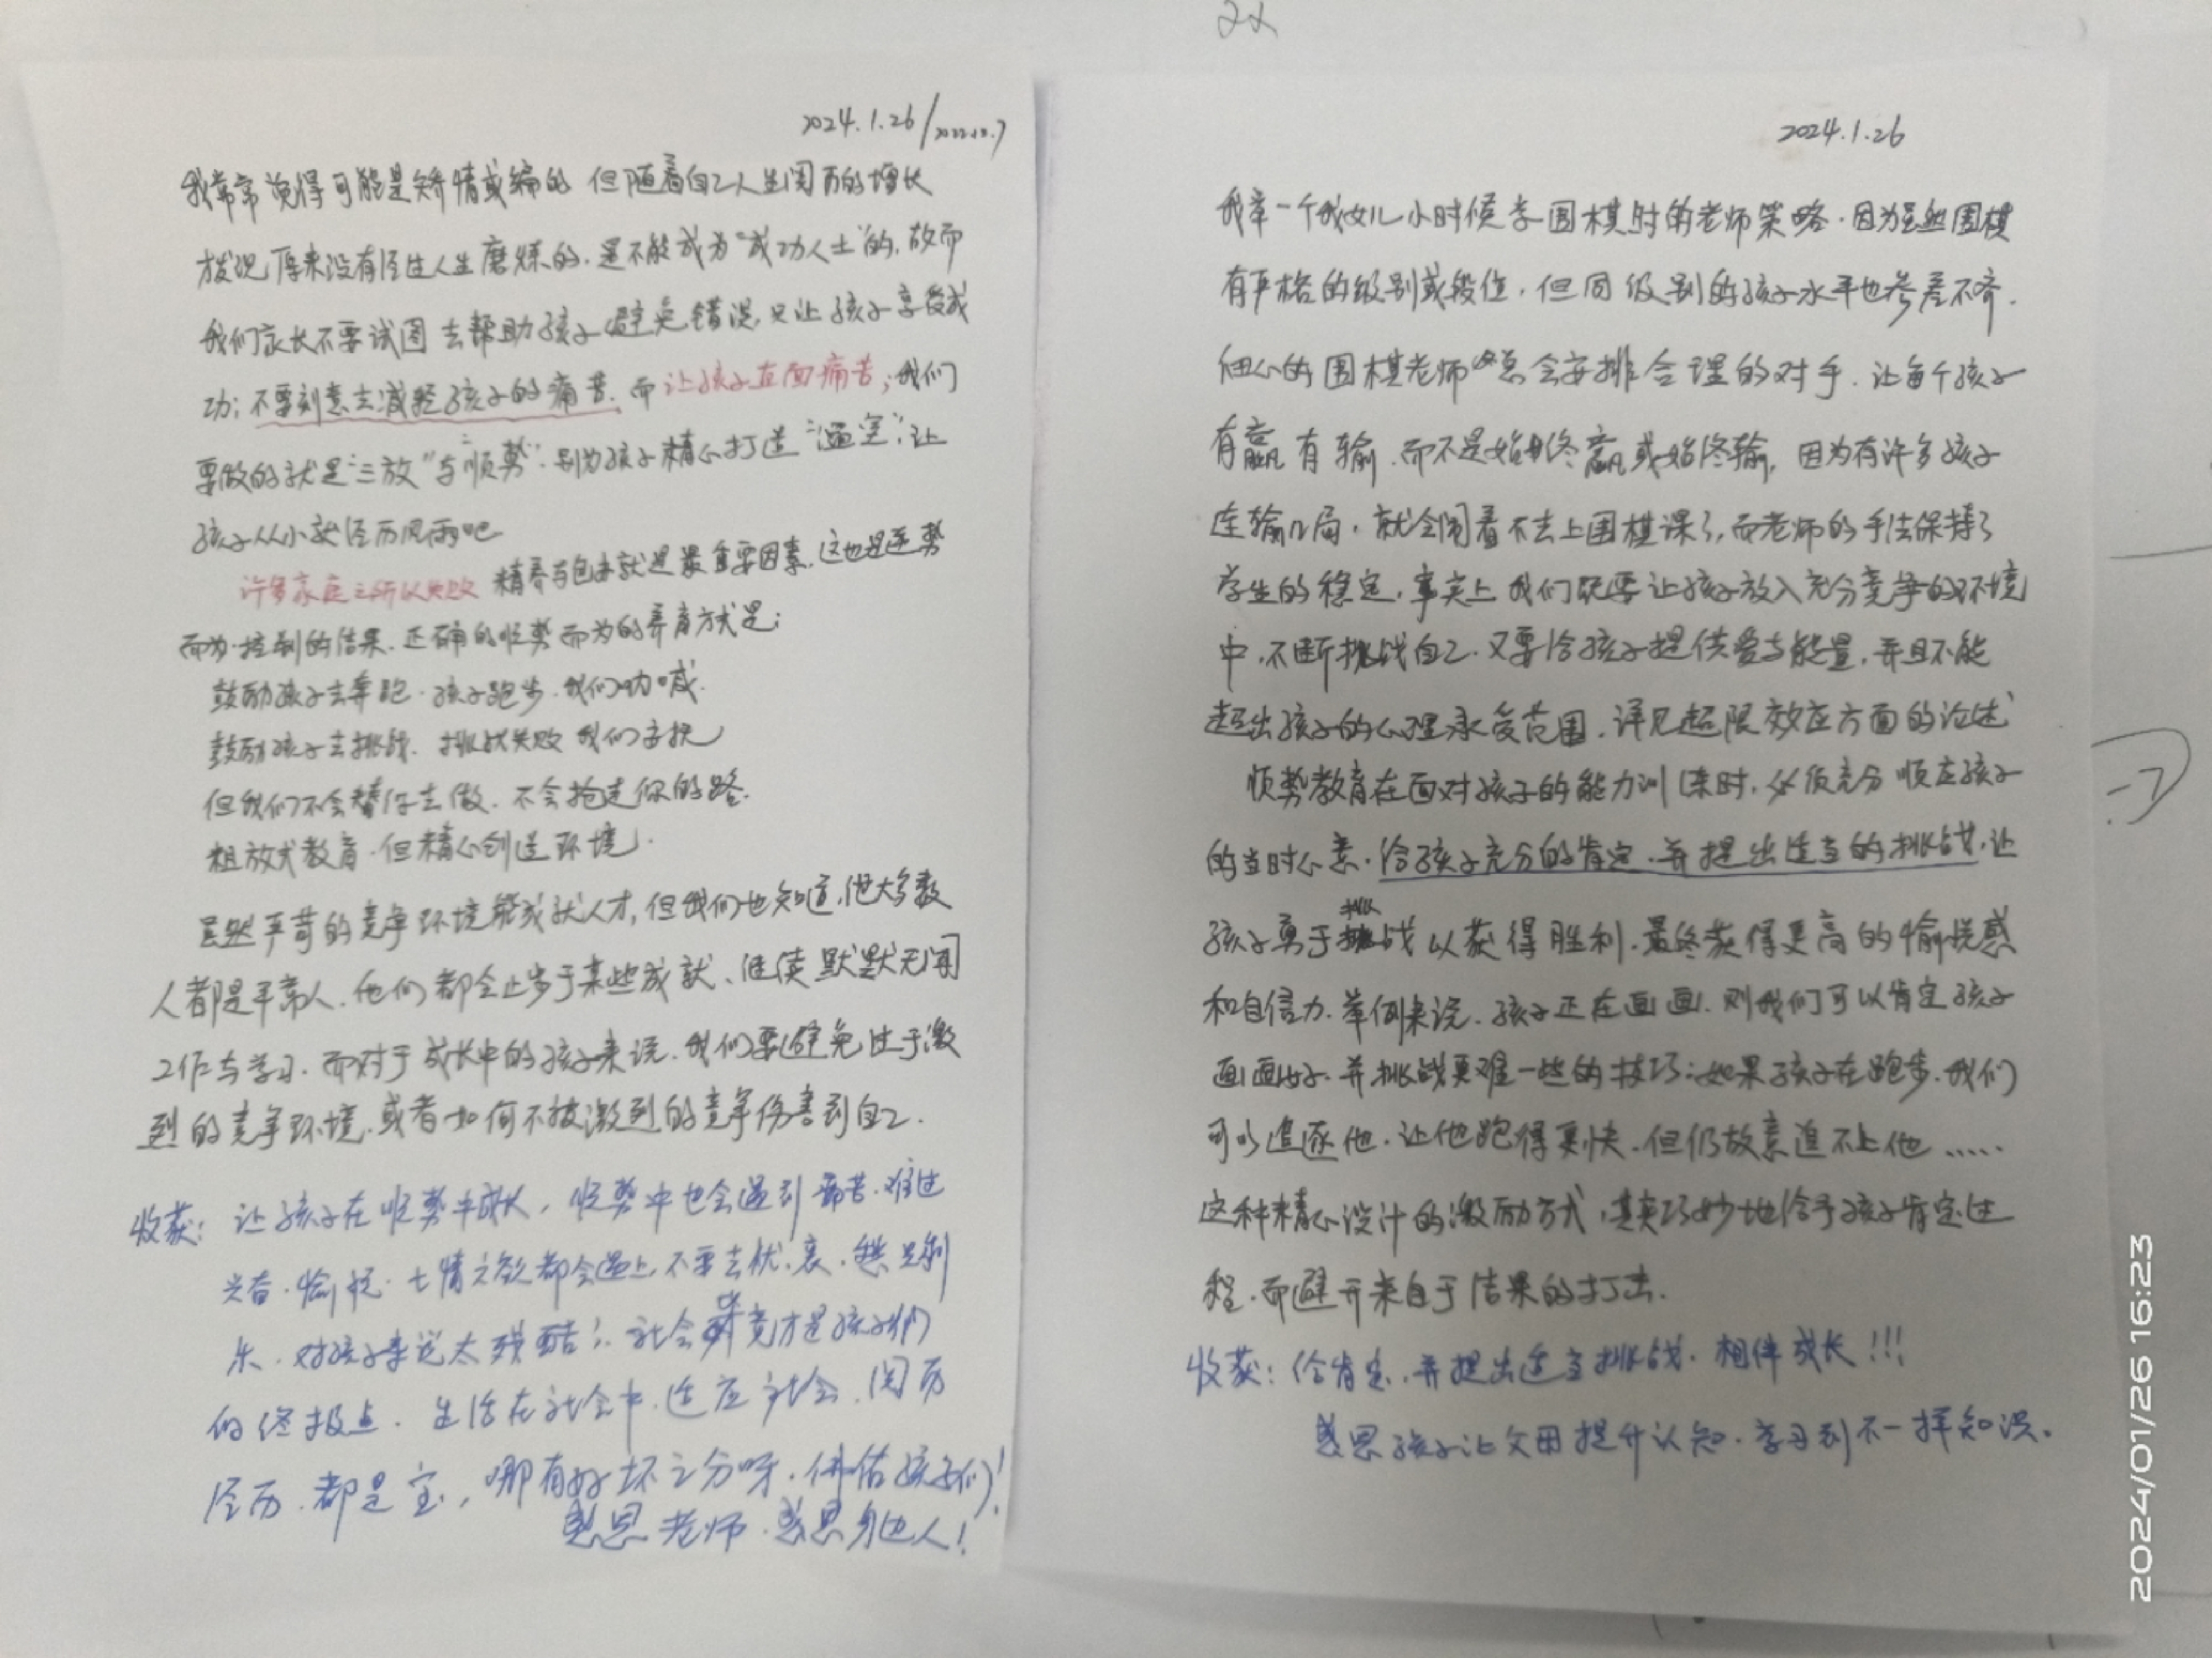 2024.1.26/2022.12.7
我常常说得可能是矫情或编的 但随着自己人生阅历的增长
才发现 原来没有经过人生磨炼的,是不能成为“成功人士”的,故而
我们家长不要试图去帮助孩子避免错误,只让孩子享受成
功;不要刻意去减轻孩子的痛苦.而让孩子直面痛苦;我们
要做的就是“三放”与“顺势”.别为孩子精心打造“温室”,让
孩子从小就经历风雨吧
许多家庭之所以失败 精养与包办就是最重要因素,这也是逆势
而为.控制的结果.正确的顺势而为的养育方式是:
鼓励孩子去奔跑.孩子跑步.我们呐喊.
鼓励孩子去挑战.挑战失败 我们安抚
但我们不会替你去做.不会抢走你的路.
粗放式教育.但精心创造环境.
虽然严苛的竞争环境能成就人才,但我们也知道,绝大多数
人都是平常人.他们都会止步于某些成就、继续默默无闻
工作与学习.而对于成长中的孩子来说.我们要避免过于激
烈的竞争环境.或者如何不被激烈的竞争伤害到自己.
收获: 让孩子在顺势中成长,顺势中也会遇到痛苦.难过
兴奋.愉悦.七情六欲都会遇上,不要去忧、哀、愁只剩
乐.对孩子来说太残酷了.社会毕竟才是孩子们
的终极点.生活在社会中.适应社会.阅历
经历.都是宝,哪有好坏之分呀.佛佑孩子们!
感恩老师.感恩身边人!
2024.1.26
我举一个我女儿小时候学围棋时的老师策略.因为虽然围棋
有严格的级别或段位.但同级别的孩子水平也参差不齐.
细心的围棋老师总会安排合理的对手.让每个孩子
有赢有输.而不是始终赢或始终输.因为有许多孩子
连输几局.就会闹着不去上围棋课了,而老师的手法保持了
学生的稳定,事实上 我们既要让孩子放入充分竞争的环境
中.不断挑战自己.又要给孩子提供爱与能量.并且不能
超出孩子的心理承受范围.详见超限效应方面的论述
顺势教育在面对孩子的能力训练时,必须充分顺应孩子
的当时心意.给孩子充分的肯定.并提出适当的挑战,让
孩子勇于挑战以获得胜利.最终获得更高的愉悦感
和自信力.举例来说.孩子正在画画.则我们可以肯定孩子
画画好.并挑战更难一些的技巧;如果孩子在跑步.我们
可以追逐他.让他跑得更快.但仍故意追不上他……
这种精心设计的激励方式,其实巧妙地给予孩子肯定过
程.而避开来自于结果的打击.
收获: 给肯定.并提出适当挑战.相伴成长!!!
感恩孩子让父母提升认知.学习到不一样知识.
2024/01/26 16:23